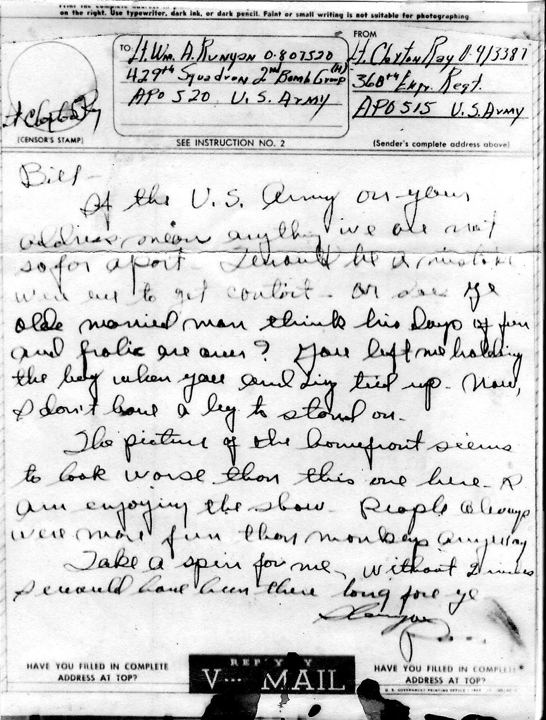 on the right. Use typewriter, dark ink, or dark pencil. Faint or small writing is not suitable for photographing.
TO
Lt Wm. A. Runyon O-807520
429th Squadron 2nd Bomb Group (H)
APO 520 U.S. Army
FROM
Lt Claxton Ray O-913387
368th Engr. Regt.
APO 515 U.S. Army
(CENSOR'S STAMP)
SEE INSTRUCTION NO. 2
(Sender's complete address above)
Bill -
If the U. S. Army on your
address mean anything we are not
so far apart. It would be a mistake
were we to get contact - or does ye
olde married man think his days of fun
and frolic are over? You left me holding
the bag when you and tied up. Now,
I don't have a leg to stand on.
The picture of the homefront seems
to look worse than this one here.
am enjoying the show. People always
were more fun than monkeys anyway
Take a spin for me, without
I would have been there long fore ye
HAVE YOU FILLED IN COMPLETE
ADDRESS AT TOP?
REPLY BY
V··· MAIL
HAVE YOU FILLED IN COMPLETE
ADDRESS AT TOP?